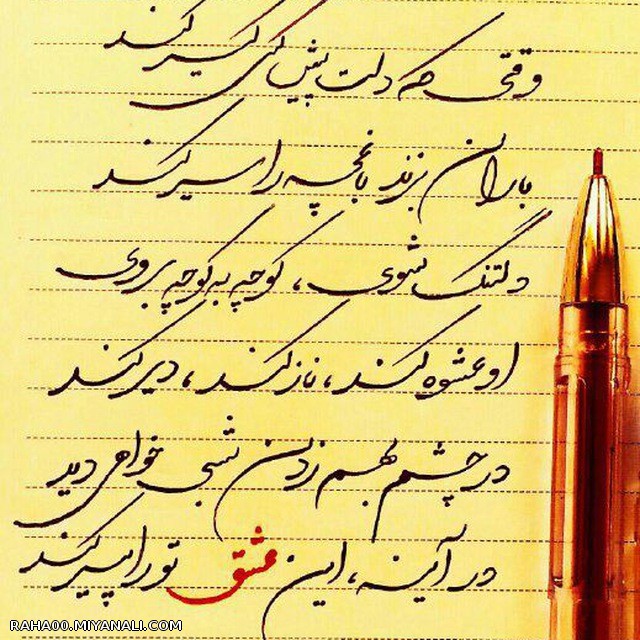 وقتی که دلت پیش کسی گیر کند
باران بزند باغچه را سیر کند
دلتنگ شوی، کوچه به کوچه بروی
او عشوه کند، ناز کند، دیر کند
در چشم بهم زدن شبی خواهی دید
در آینه، این عشق تو را پیر کند
RAHA00.MIYANALI.COM